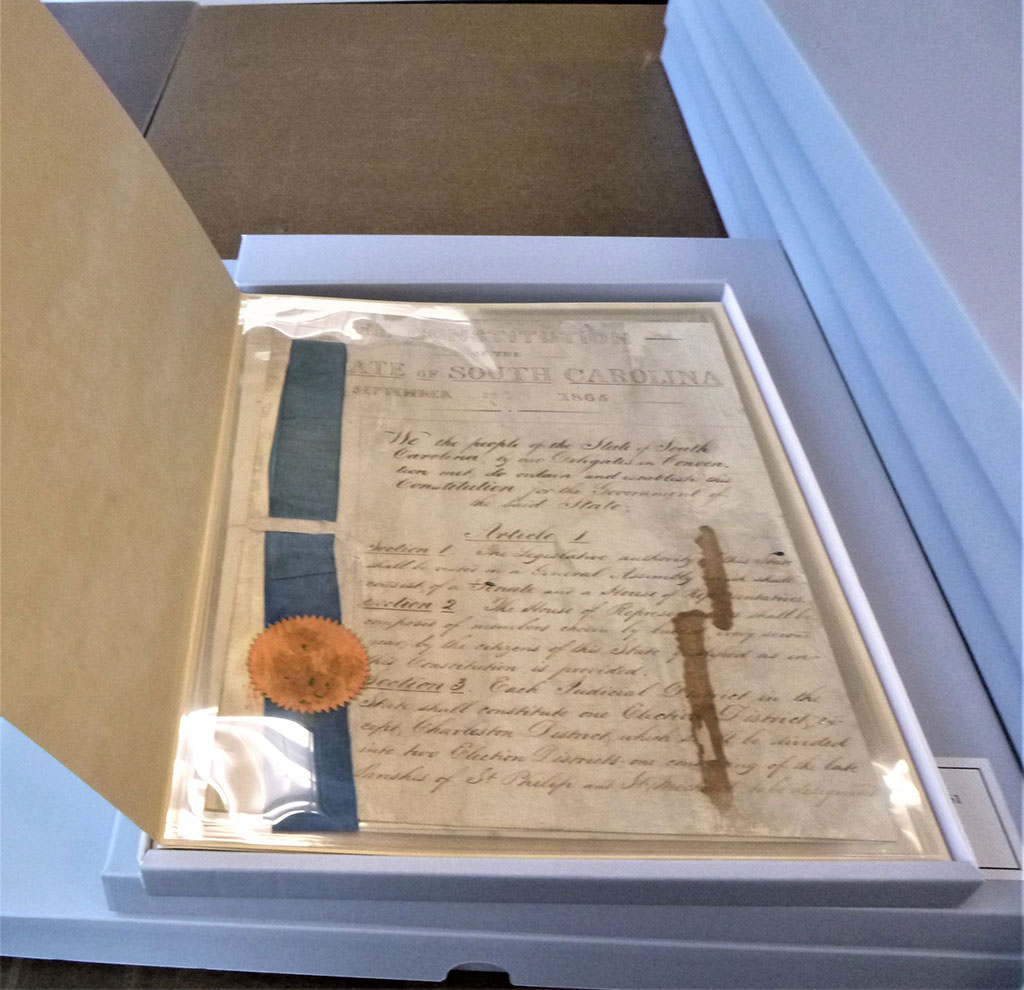 CONSTITUTION
OF THE
STATE OF SOUTH CAROLINA
SEPTEMBER 1865
We the people of the State of South
Carolina by our Delegates in Conven-
tion met, do ordain and establish this
Constitution for the Government of
the said State.
Article 1
Section 1 The Legislative authority this State
shall be vested in a General Assembly shall
consist of a Senate and a House of Representatives
Section 2 The House of shall be
composed of members chosen by second
year by the citizens of this State as in
this Constitution is provided.
Section 3. Each Judicial District in the
State shall constitute one Election District, ex-
cept Charleston District, which be divided
into two Election Districts one of the late
Parishes of St Philip and St to be designated